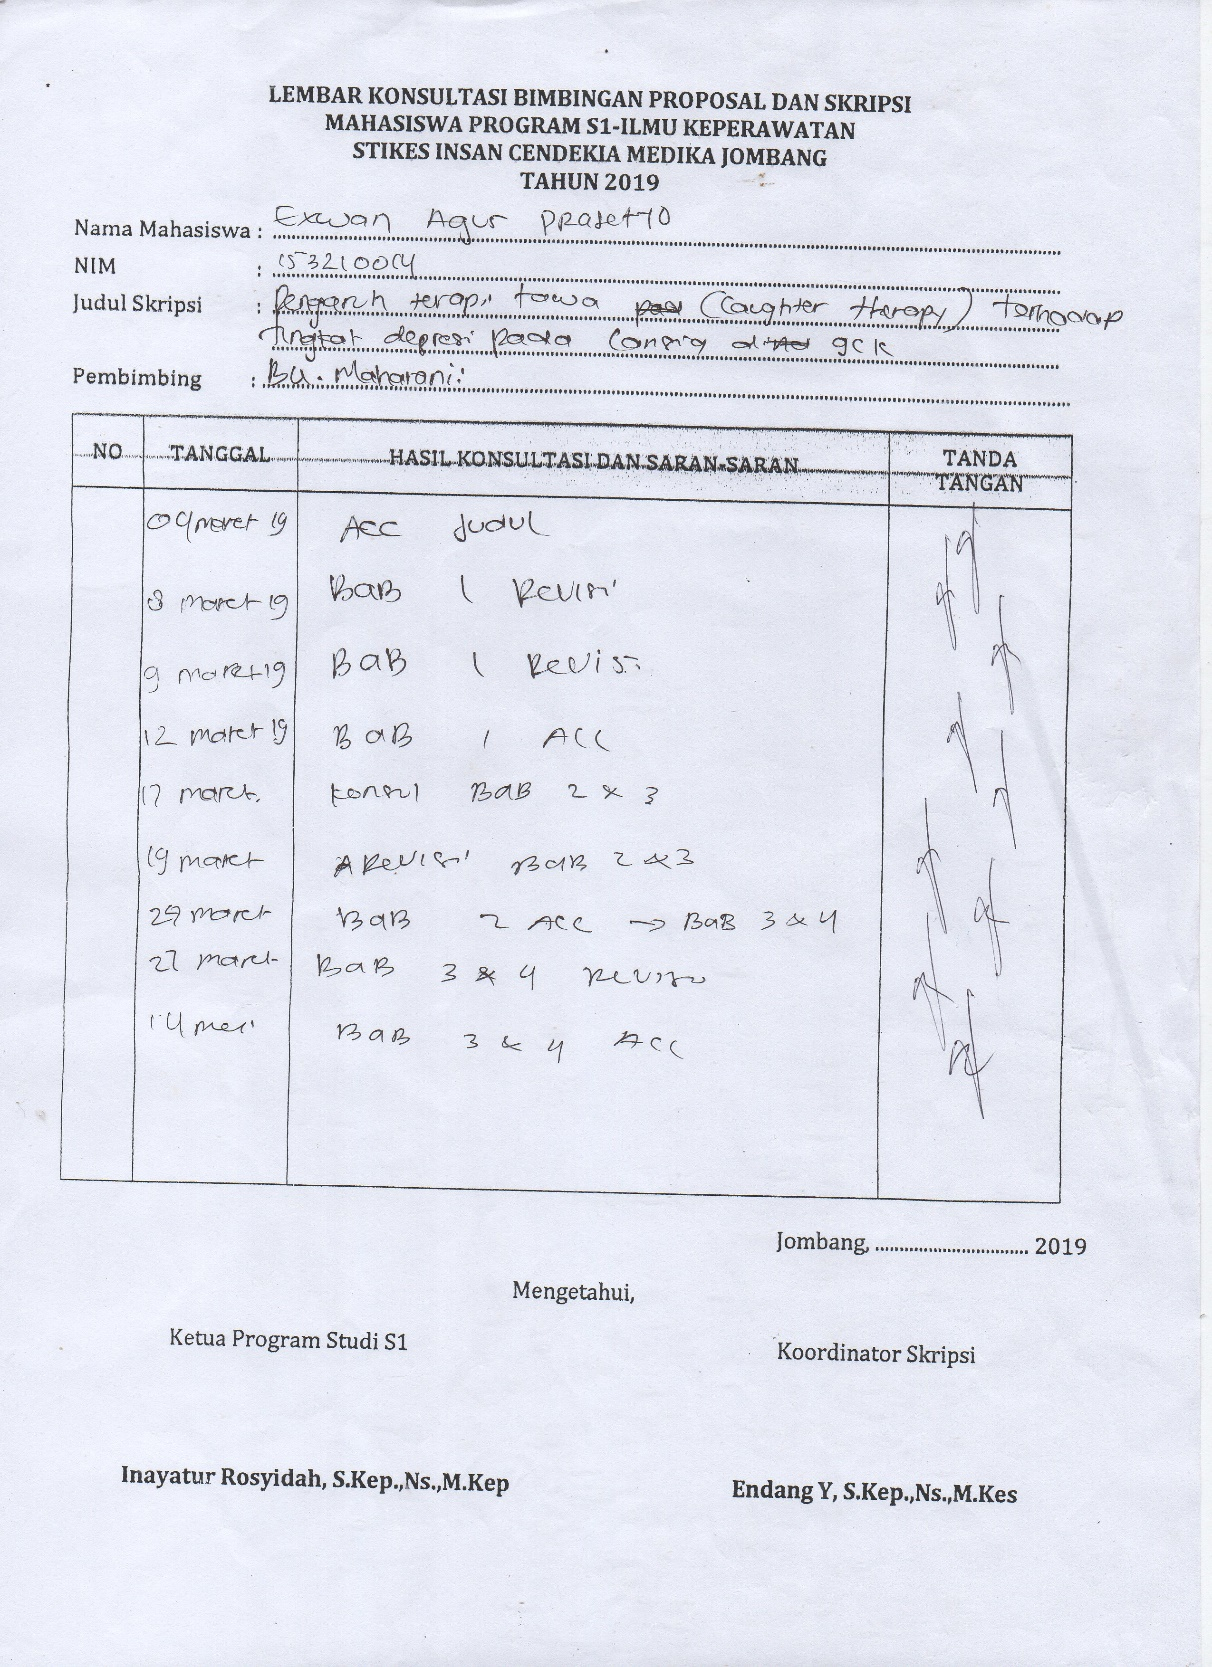 LEMBAR KONSULTASI BIMBINGAN PROPOSAL DAN SKRIPSI
MAHASISWA PROGRAM S1-ILMU KEPERAWATAN
STIKES INSAN CENDEKIA MEDIKA JOMBANG
TAHUN 2019
Nama Mahasiswa : Exwan Agus Prasetyo
NIM : 153210014
Judul Skripsi : Pengaruh terapi tawa (Laughter therapy) Terhadap
tingkat depresi pada lansia di
Pembimbing : Bu. Maharani
NO TANGGAL HASIL KONSULTASI DAN SARAN-SARAN TANDA TANGAN
04 maret 19 ACC Judul
8 maret 19 BaB 1 Revisi
9 maret 19 BaB 1 Revisi
12 maret 19 BaB 1 ACC
17 maret. konsul BaB 2 & 3
19 maret Revisi BaB 2 & 3
29 maret BaB 2 ACC → BaB 3 & 4
27 maret BaB 3 & 4 Revisi
14 mei BaB 3 & 4 ACC
Jombang, .............................. 2019
Mengetahui,
Ketua Program Studi S1 Koordinator Skripsi
Inayatur Rosyidah, S.Kep.,Ns.,M.Kep Endang Y, S.Kep.,Ns.,M.Kes